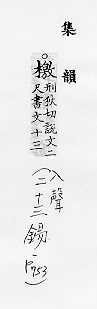 集韻
○檄刑狄切說文二
尺書文十三
(入聲
二十三錫-p953)